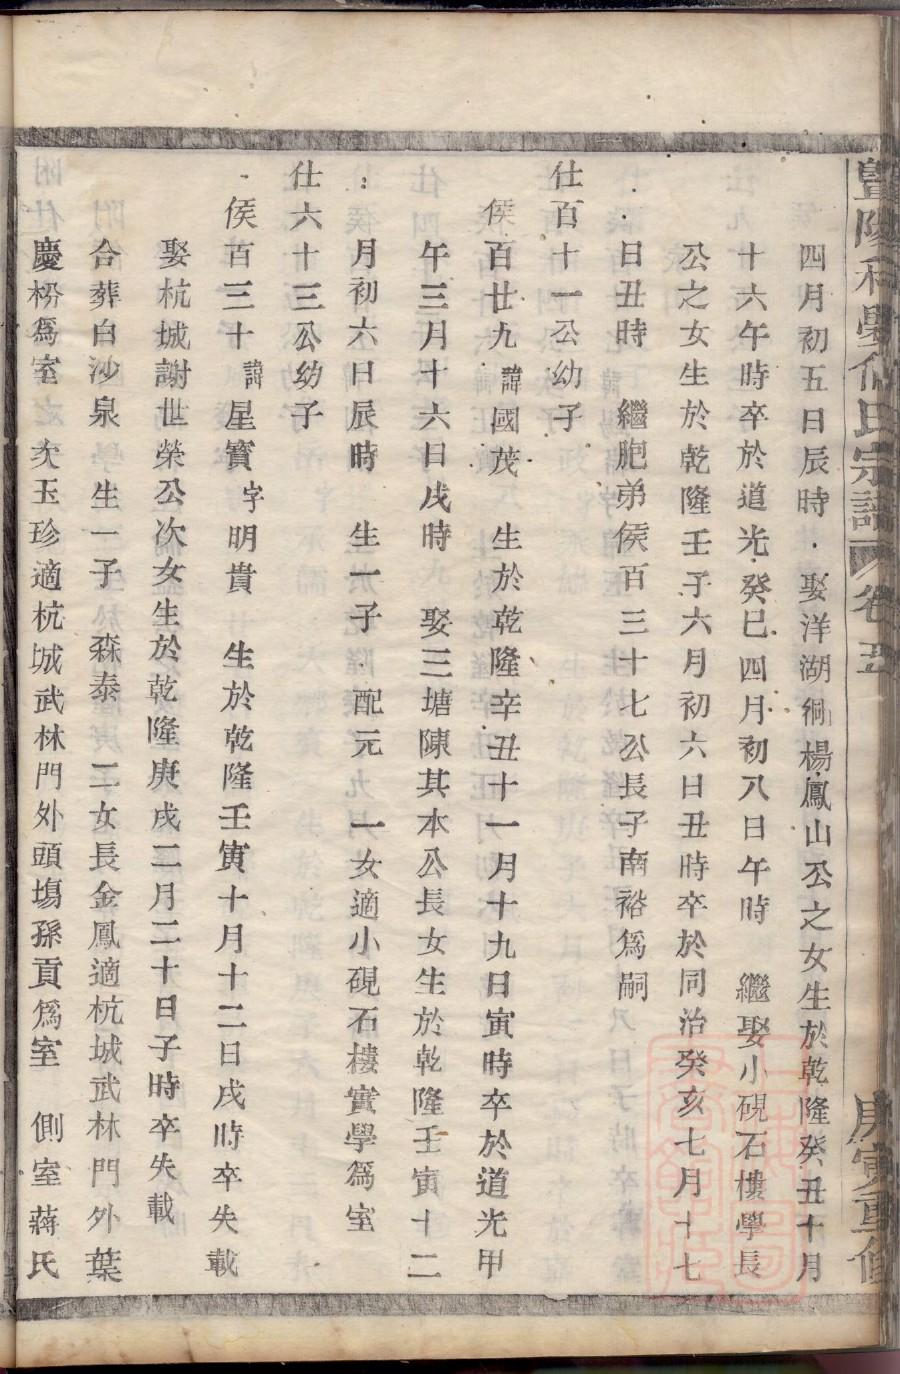 四月初五日辰時 娶洋湖衕楊鳳山公之女生於乾隆癸丑十月
十六午時卒於道光癸巳四月初八日午時 繼娶小硯石樓學長
公之女生於乾隆壬子六月初六日丑時卒於同治癸亥七月十七
日丑時 繼胞弟侯百三十七公長子南裕爲嗣
仕百十一公幼子
侯百廿九諱國茂 生於乾隆辛丑十一月十九日寅時卒於道光甲
午三月十六日戌時 娶三塘陳其本公長女生於乾隆壬寅十二
月初六日辰時 生一子 配元 一女適小硯石樓實學爲室
仕六十三公幼子
侯百三十諱星寳字明貴 生於乾隆壬寅十月十二日戌時卒失載
娶杭城謝世榮公次女生於乾隆庚戌二月二十日子時卒失載
合葬白沙泉生一子 森泰 二女長金鳳適杭城武林門外葉
慶枌爲室 次玉珍適杭城武林門外頭塲孫貢爲室 側室蔣氏
宗譜 卷五
庚寅重修